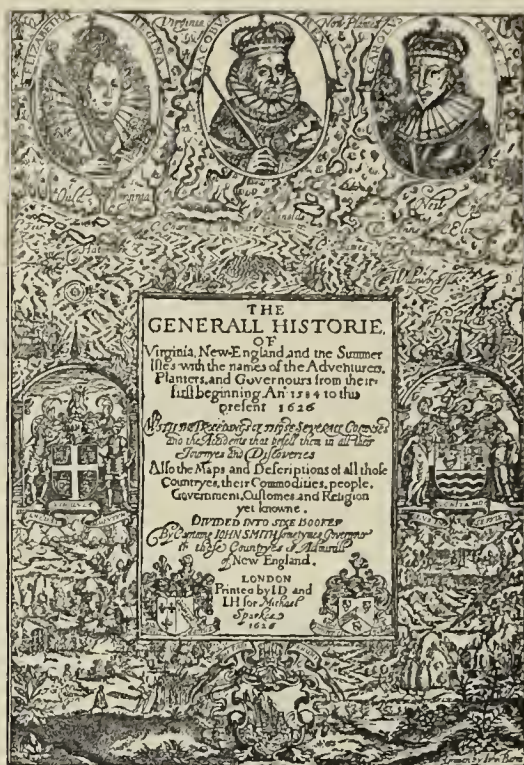 ELIZABETHA REGINA
Virginia
IACOBUS REX
CAROLUS
Ould Virginia
THE
GENERALL HISTORIE
OF
Virginia, New-England, and the Summer
Isles with the names of the Adventurers,
Planters, and Governours from their
first beginning An: 1584 to this
present 1626
and the Accidents that befell them in all their
Journyes and Discoveries
Also the Maps and Descriptions of all those
Countryes, their Commodities, people,
Government, Customes, and Religion
yet knowne.
DIVIDED INTO SIXE BOOKES
By Captaine IOHN SMITH sometymes Governour
in those Countryes & Admirall
of New England.
LONDON
Printed by I.D. and
I.H. for Michael
Sparkes
1626